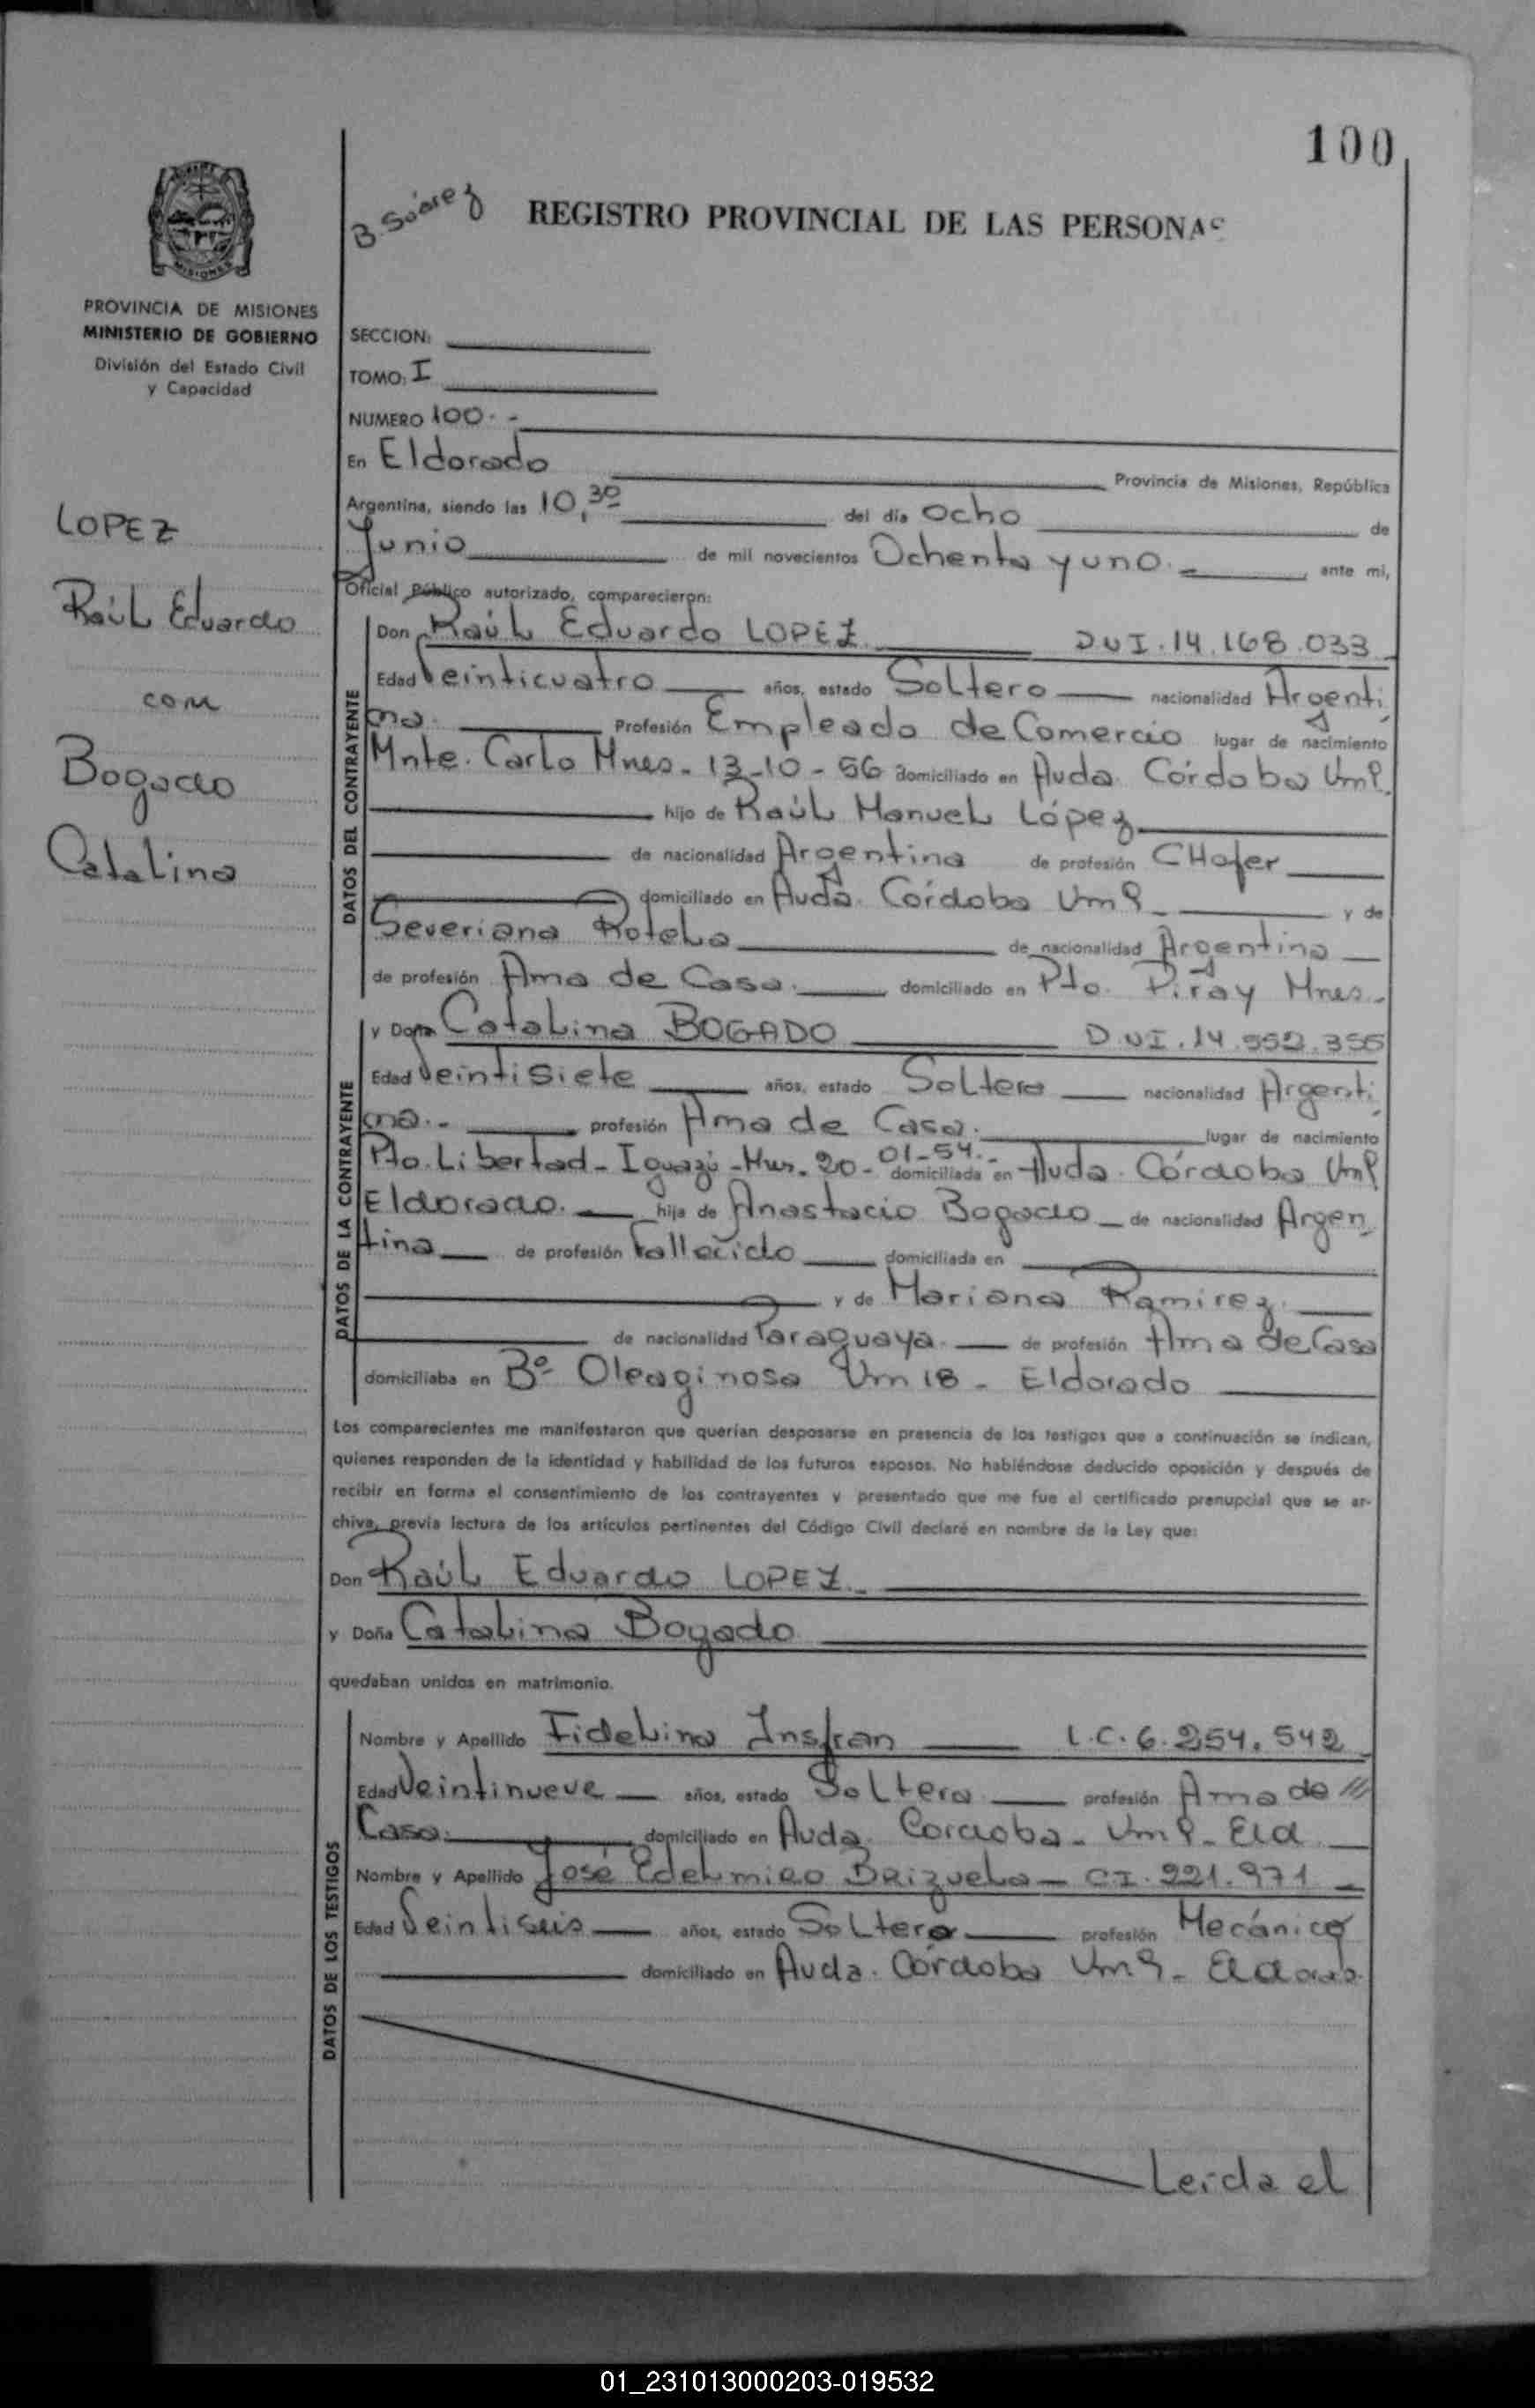 100
B. Suárez
REGISTRO PROVINCIAL DE LAS PERSONAS
MISIONES
PROVINCIA DE MISIONES
MINISTERIO DE GOBIERNO
División del Estado Civil
y Capacidad
LOPEZ
Raúl Eduardo
com
Bogado
Catalina
SECCION:
TOMO: I
NUMERO 100.-
En Eldorado Provincia de Misiones, República
Argentina, siendo las 10,30 del día Ocho de
Junio de mil novecientos Ochenta y uno.- ante mi,
Oficial Público autorizado, comparecieron:
DATOS DEL CONTRAYENTE
Don Raúl Eduardo LOPEZ D.U.I. 14.168.033
Edad Veinticuatro años, estado Soltero nacionalidad Argenti
na. Profesión Empleado de Comercio lugar de nacimiento
Mnte. Carlo Mnes.- 13-10-56 domiciliado en Avda. Córdoba Km 9.
hijo de Raúl Manuel López
de nacionalidad Argentina de profesión CHofer
domiciliado en Avda. Córdoba Km 9 y de
Severiana Rotela de nacionalidad Argentina
de profesión Ama de Casa. domiciliado en Pto. Piray Mnes.
DATOS DE LA CONTRAYENTE
y Doña Catalina BOGADO D.U.I. 14.552.355
Edad Veintisiete años, estado Soltera nacionalidad Argenti
na.- profesión Ama de Casa. lugar de nacimiento
Pto. Libertad - Iguazú - Mnes. 20-01-54.- domiciliada en Avda. Córdoba Km 9
Eldorado. hija de Anastacio Bogado de nacionalidad Argen
tina de profesión Fallecido domiciliada en
y de Mariana Ramirez.
de nacionalidad Paraguaya. de profesión Ama de Casa
domiciliaba en Bº Oleaginosa Km 18 - Eldorado
Los comparecientes me manifestaron que querían desposarse en presencia de los testigos que a continuación se indican,
quienes responden de la identidad y habilidad de los futuros esposos. No habiéndose deducido oposición y después de
recibir en forma el consentimiento de los contrayentes y presentado que me fue el certificado prenupcial que se ar-
chiva, previa lectura de los artículos pertinentes del Código Civil declaré en nombre de la Ley que:
Don Raúl Eduardo LOPEZ.
y Doña Catalina Bogado
quedaban unidos en matrimonio.
DATOS DE LOS TESTIGOS
Nombre y Apellido Fidelina Insfran L.C. 6.254.542
Edad Veintinueve años, estado Soltera profesión Ama de
Casa. domiciliado en Avda. Cordoba - Km 9 - Eld
Nombre y Apellido José Edelmiro Brizuela - C.I. 221.971
Edad Veintiseis años, estado Soltero profesión Mecánico
domiciliado en Avda. Córdoba Km 9 - Eldorado.
Leida el
01_231013000203-019532